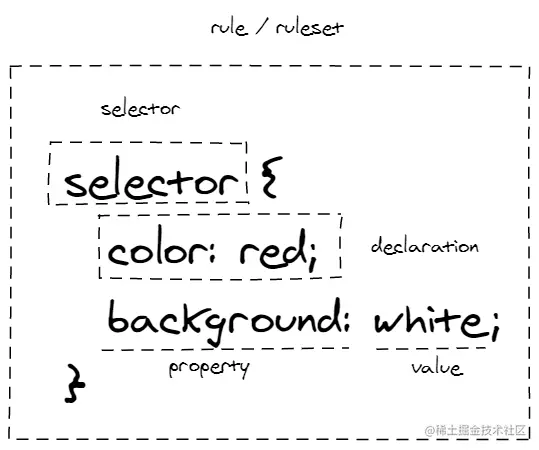 rule / ruleset
selector
selector {
color: red;
declaration
background: white;
property
value
}
@稀土掘金技术社区